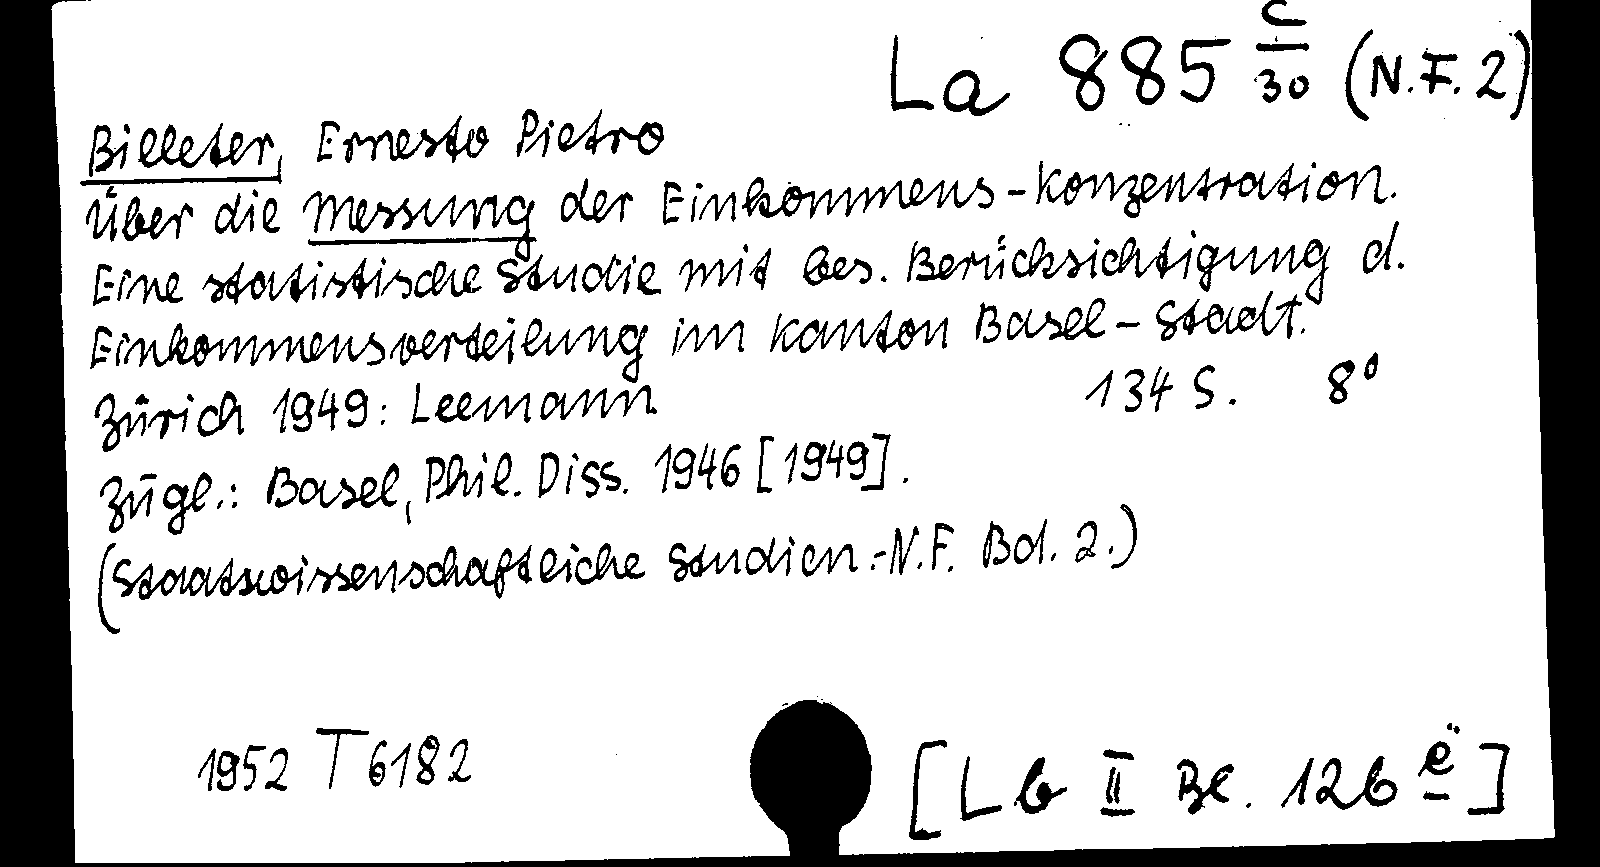 La 885 c/30 (N.F. 2)
Billeter, Ernesto Pietro
Über die Messung der Einkommens-Konzentration.
Eine statistische Studie mit bes. Berücksichtigung d.
Einkommensverteilung im Kanton Basel-Stadt.
Zürich 1949: Leemann 134 S. 8°
Zugl.: Basel, Phil. Diss. 1946 [1949].
(Staatswissenschaftliche Studien.-N.F. Bd. 2.)
1952 T 6182
[Lb II Be. 126 ë]